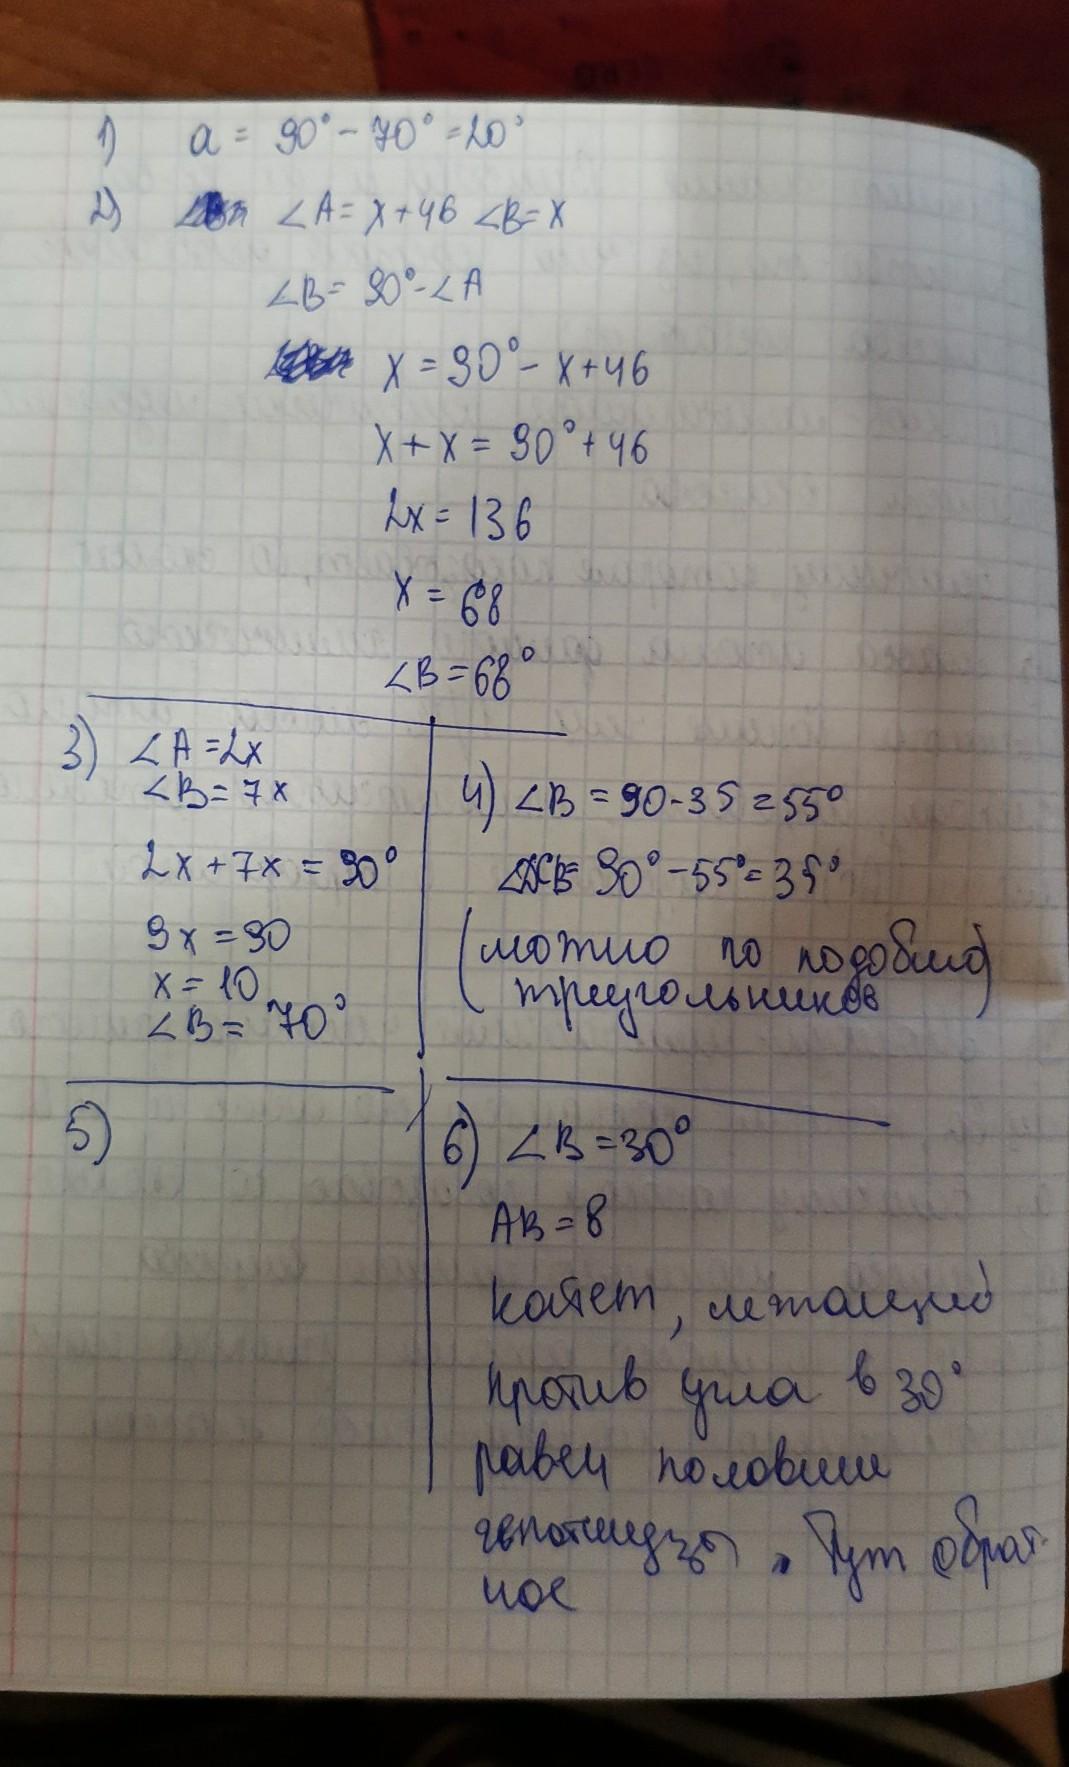 1) a = 90° - 70° = 20°
2) ∠A = x+46 ∠B = x
∠B = 90° - ∠A
x = 90° - x + 46
x + x = 90° + 46
2x = 136
x = 68
∠B = 68°
3) ∠A = 2x
∠B = 7x
2x + 7x = 90°
9x = 90
x = 10
∠B = 70°
4) ∠B = 90 - 35 = 55°
90° - 55° = 35°
(можно по подобию
треугольников)
5)
6) ∠B = 30°
AB = 8
Катет, лежащий
против угла в 30°
равен половине
гипотенузы. Тут обрат-
ное